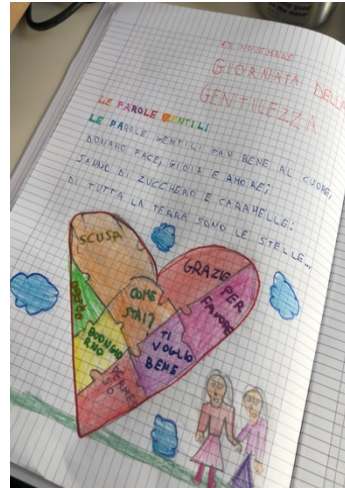 13 NOVEMBRE
GIORNATA DELLA
GENTILEZZA
LE PAROLE GENTILI
LE PAROLE GENTILI FAN BENE AL CUORE,
DONANO PACE, GIOIA E AMORE;
SANNO DI ZUCCHERO E CARAMELLE:
DI TUTTA LA TERRA SONO LE STELLE...
SCUSA
GRAZIE
PER
FAVORE
PREGO
COME
STAI?
BUONGIO
RNO
TI
VOGLIO
BENE
PERMES
SO